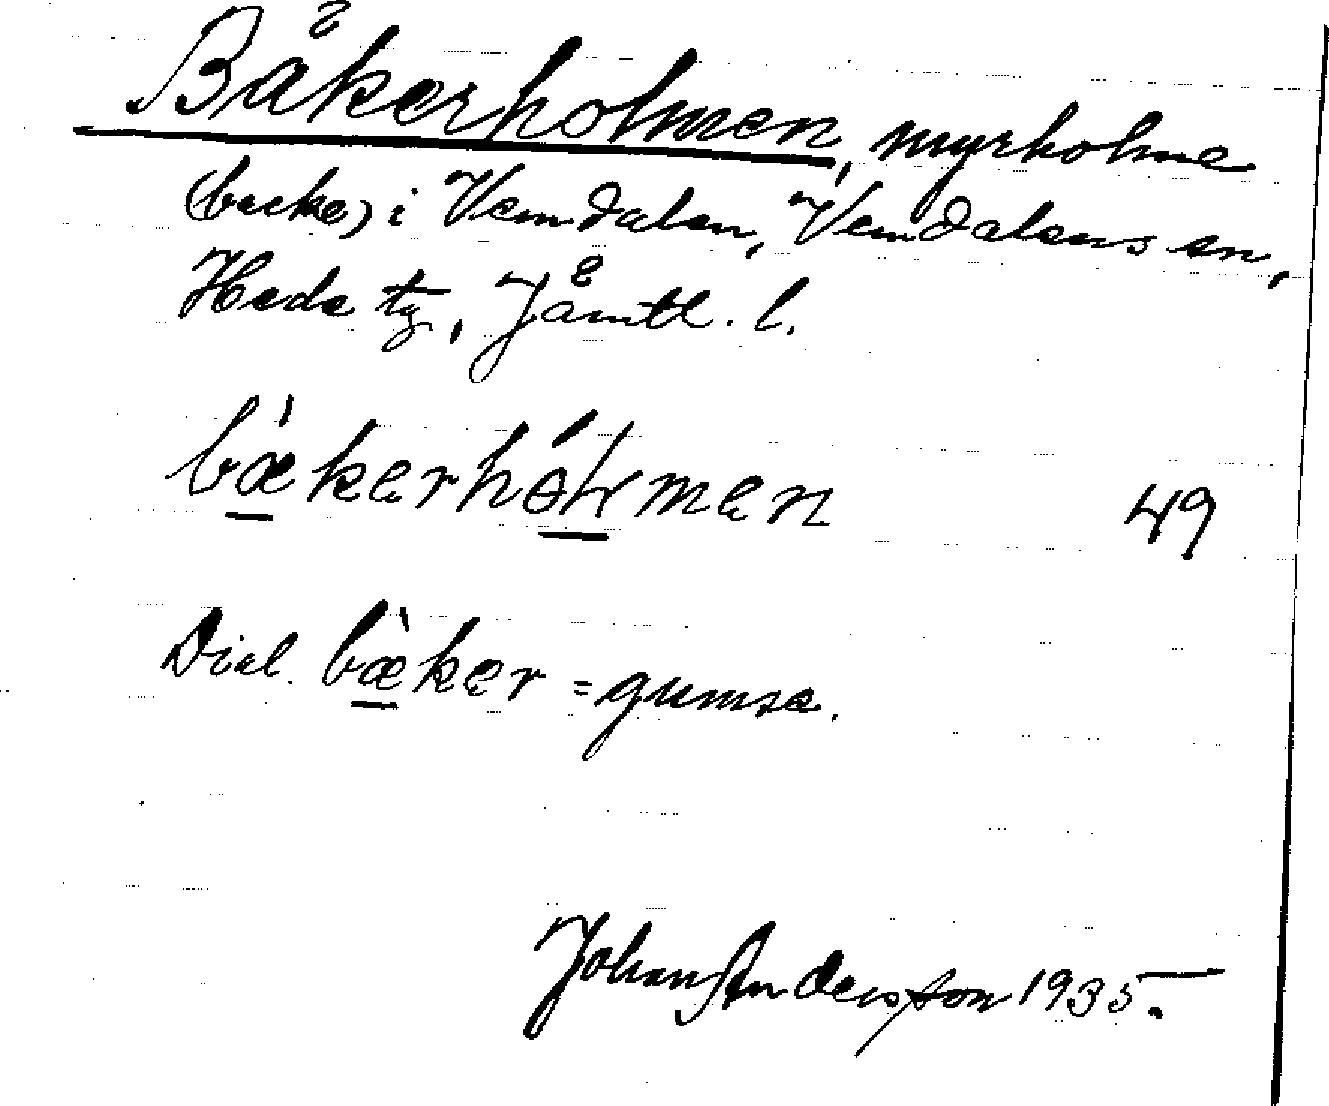 Bäkerholmen, myrholme
(backe) i Vemdalen, Vemdalens sn,
Hede tg, Jämtl. l.
bæ̀kerhóɫmen 49
Dial. bæ̀ker = gumse.
Johan Andersson 1935.